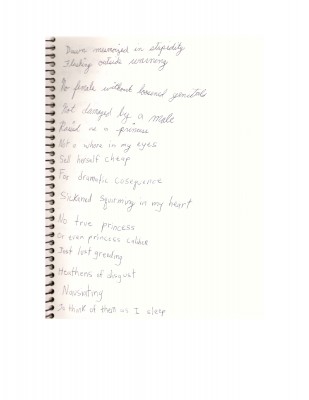 Dawn memorized in stupidity
Flashing outside warning
No female without loosened genitals
Not damaged by a male
Raised as a princess
Not a whore in my eyes
Sell herself cheap
For dramatic cosequence
Sickened squirming in my heart
No true princess
Or even princess caliber
Just lost grending
Heathens of disgust
Nauseating
To think of them as I sleep